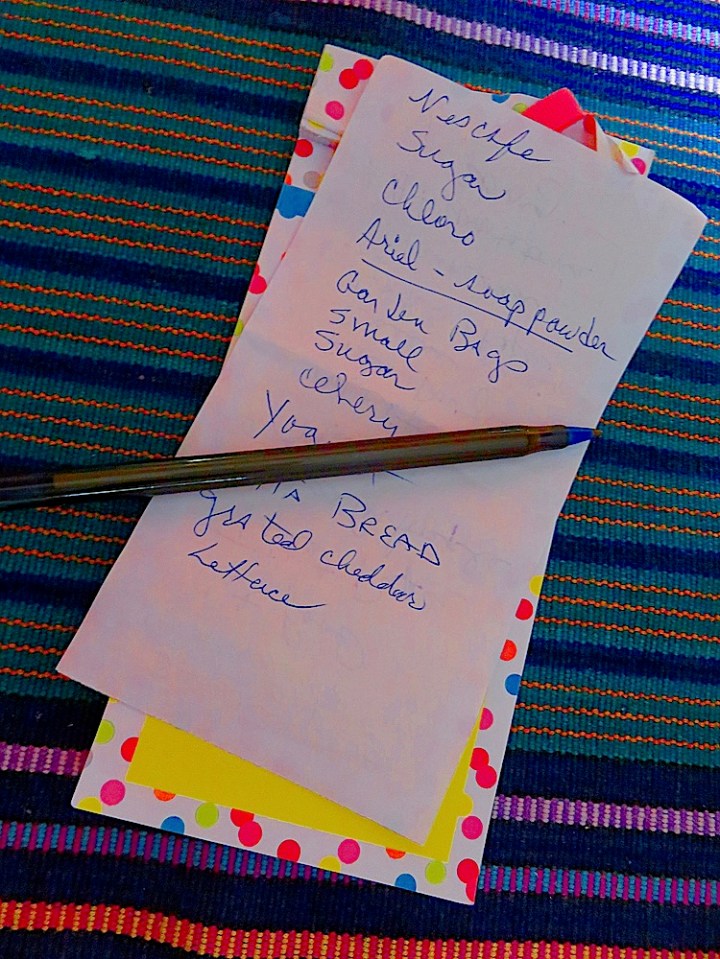 Nescafe
Sugar
Chloro
Ariel - soap powder
Garden Bags
small
Sugar
celery
BREAD
grated cheddar
Lettuce